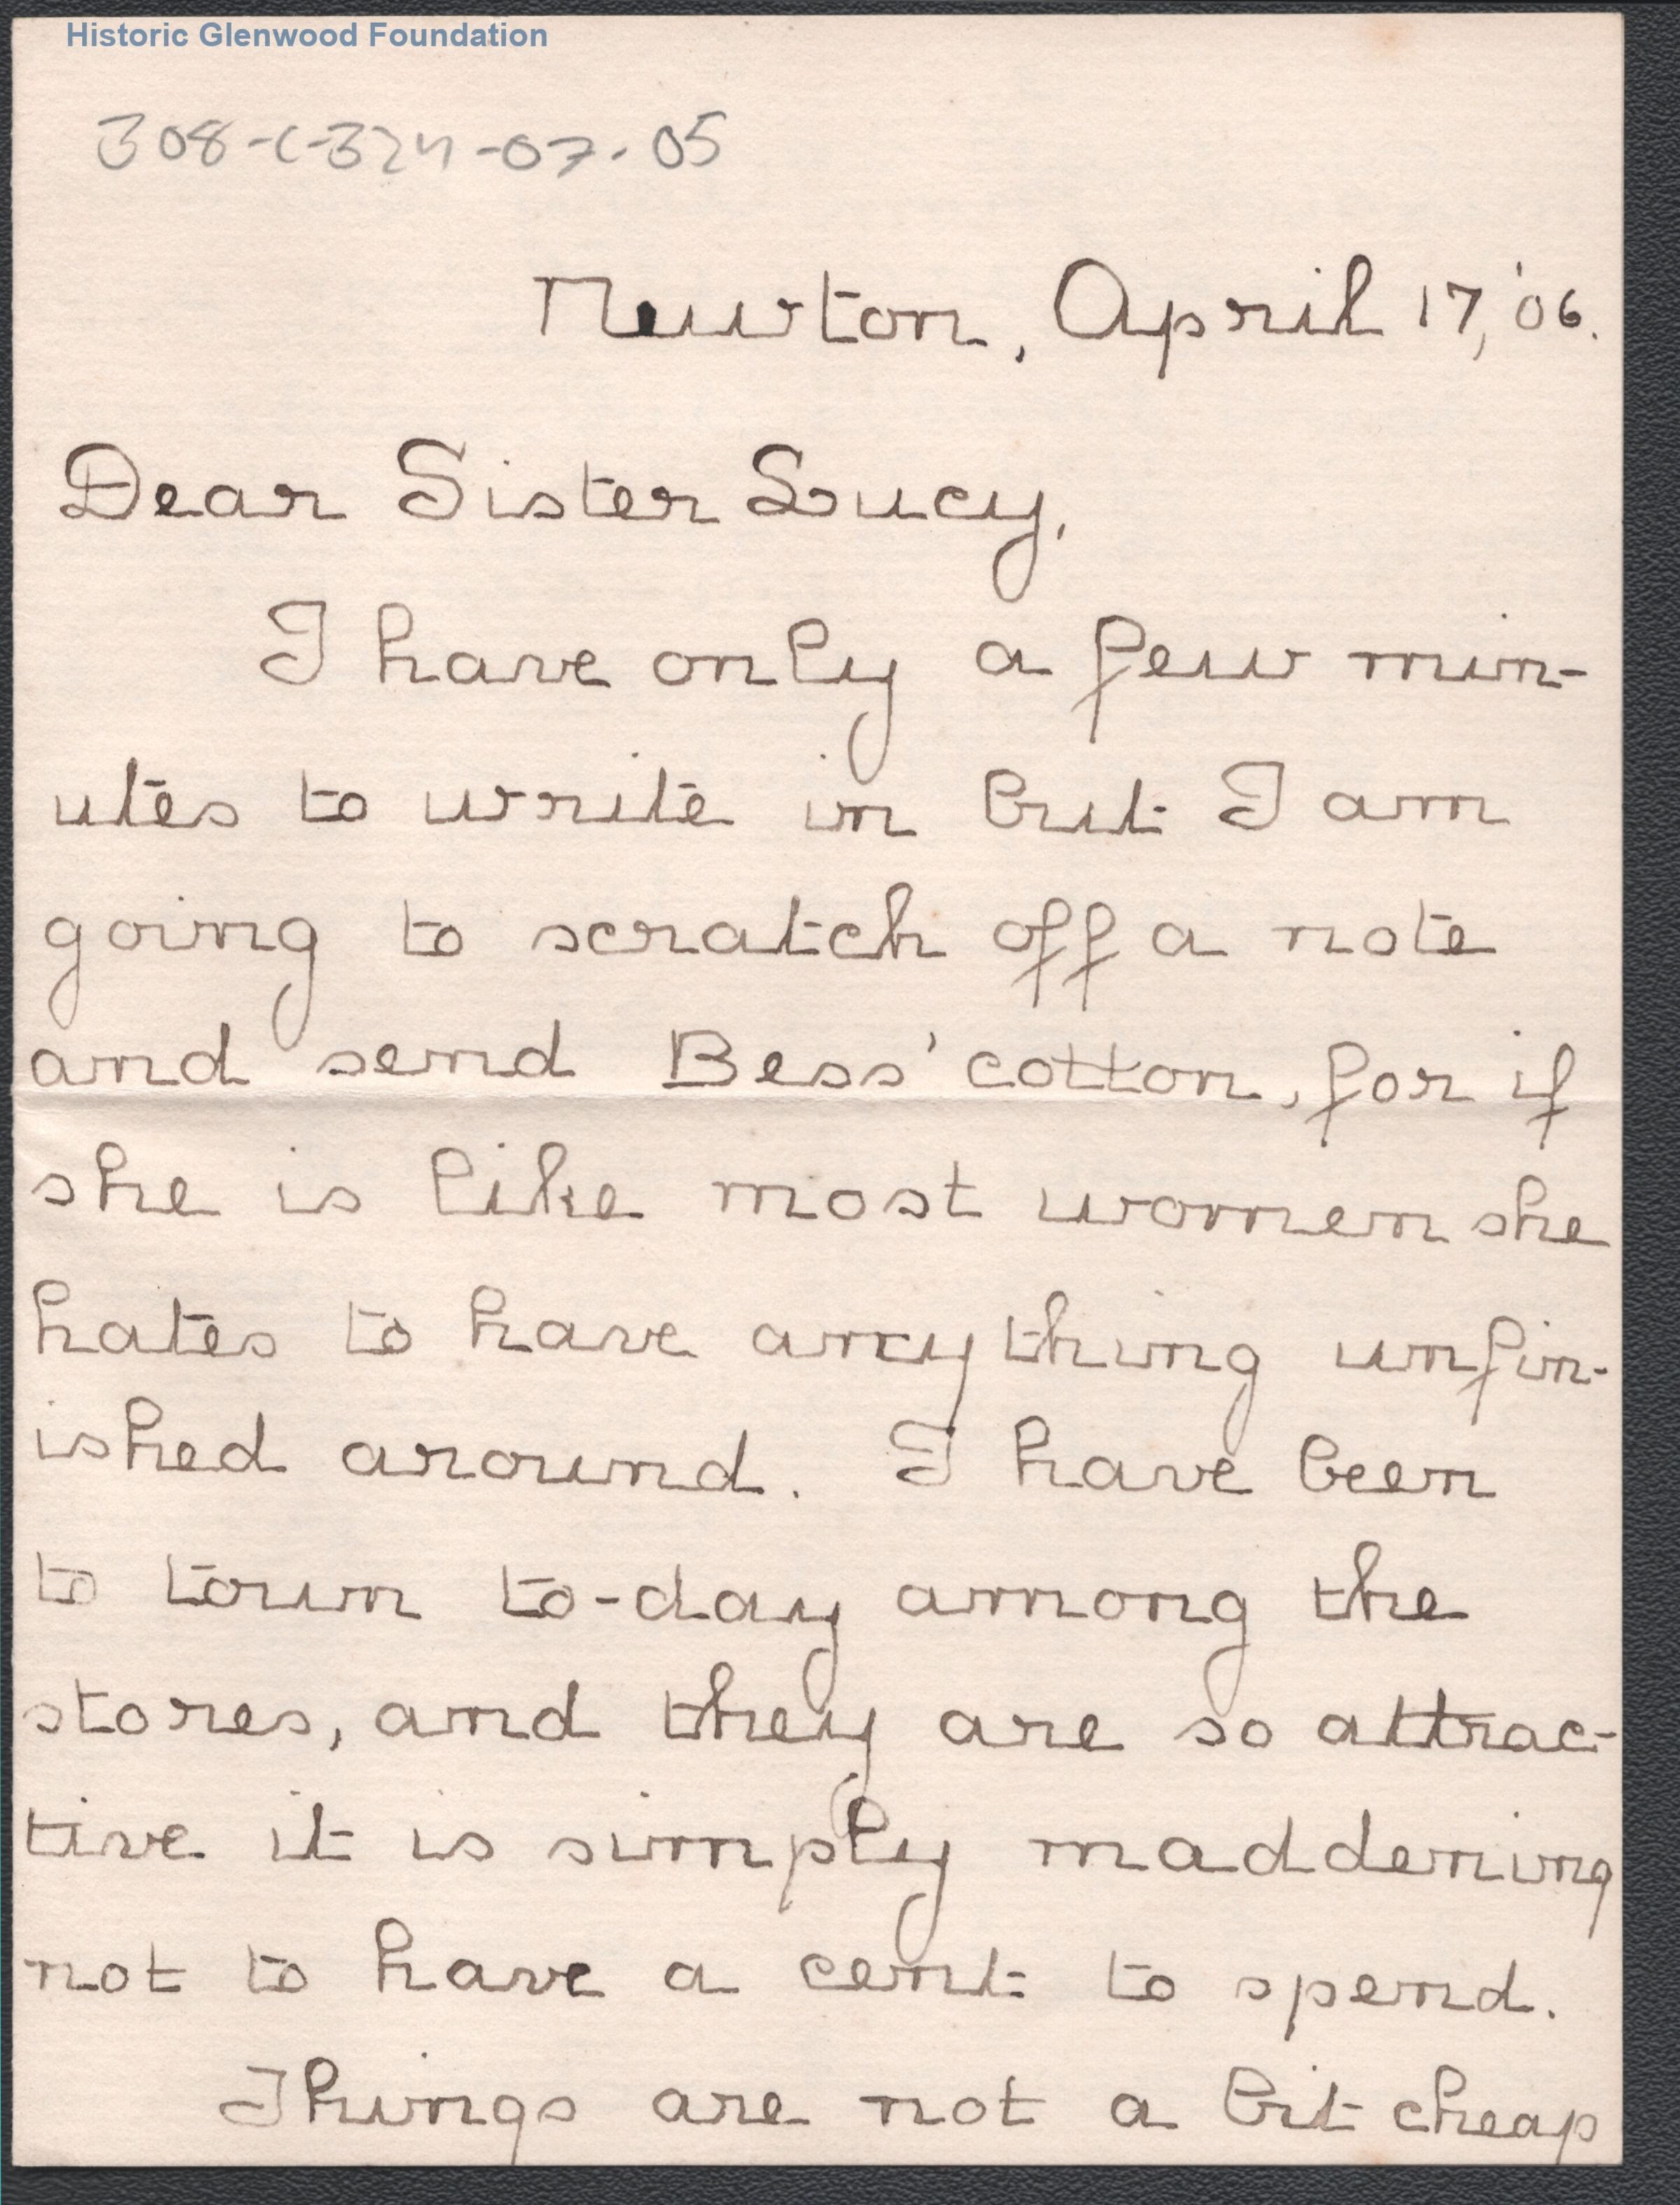 Historic Glenwood Foundation
308-C-324-07.05
Newton, April 17, '06.
Dear Sister Lucy,
I have only a few min-
utes to write in but I am
going to scratch off a note
and send Bess' cotton, for if
she is like most women she
hates to have anything unfin-
ished around. I have been
to town to-day among the
stores, and they are so attrac-
tive it is simply maddening
not to have a cent to spend.
Things are not a bit cheap